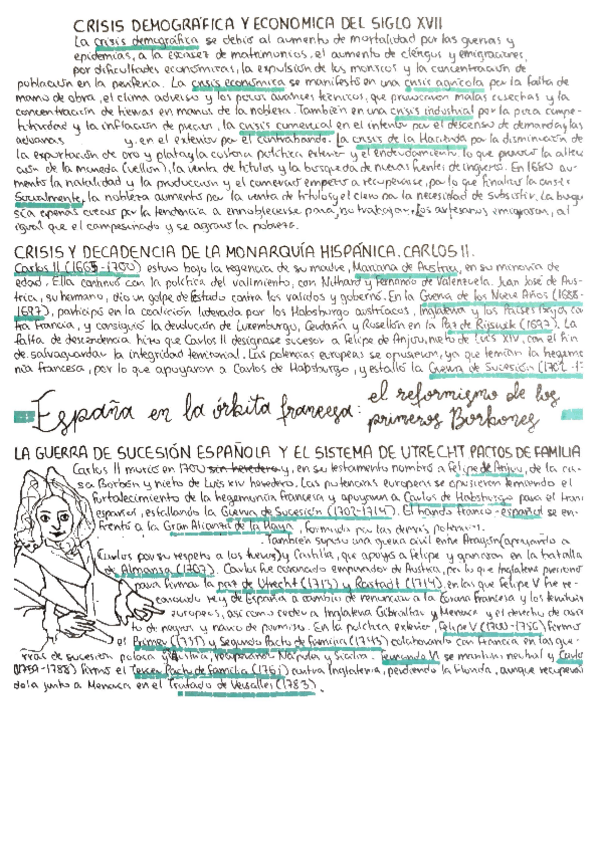 CRISIS DEMOGRAFICA Y ECONOMICA DEL SIGLO XVII
La crisis demográfica se debió al aumento de mortalidad por las guerras y
epidemias, a la escasez de matrimonios, el aumento de clérigos y emigraciones,
por dificultades económicas, la expulsión de los moriscos y la concentración de
población en la periferia. La crisis económica se manifestó en una crisis agrícola por la falta de
mano de obra, el clima adverso y los pocos avances técnicos, que provocaron malas cosechas y la
concentración de tierras en manos de la nobleza. También en una crisis industrial por la poca compe-
titividad y la inflación de precios, la crisis comercial en el interior por el descenso de demanda y las
aduanas y, en el exterior por el contrabando. La crisis de la Hacienda por la disminución de
la exportación de oro y plata, la costosa política exterior y el endeudamiento, lo que provocó la altera
ción de la moneda (vellón), la venta de títulos y la búsqueda de nuevas fuentes de ingreso. En 1680 au-
mentó la natalidad y la producción y el comercio empezó a recuperarse, por lo que finalizó la crisis
Socialmente, la nobleza aumentó por la venta de títulos y el clero por la necesidad de subsistir. La burgue
sía apenas creció por la tendencia a ennoblecerse para no trabajar. Los artesanos emigraron, al
igual que el campesinado y se agravó la pobreza.
CRISIS Y DECADENCIA DE LA MONARQUÍA HISPÁNICA. CARLOS II.
Carlos II (1665-1700) estuvo bajo la regencia de su madre, Mariana de Austria, en su minoría de
edad. Ella continuó con la política del valimiento, con Nithard y Fernando de Valenzuela. Juan José de Aus-
tria, su hermano, dio un golpe de Estado contra los validos y gobernó. En la Guerra de los Nueve Años (1688-
1697), participó en la coalición liderada por los Habsburgo austríacos, Inglaterra y los Países Bajos co
tra Francia, y consiguió la devolución de Luxemburgo, Cerdaña y Rosellón en la Paz de Rijswik (1697). La
falta de descendencia hizo que Carlos II designase sucesor a Felipe de Anjou, nieto de Luis XIV, con el fin
de salvaguardar la integridad territorial. Las potencias europeas se opusieron, ya que temían la hegemo
nía francesa, por lo que apoyaron a Carlos de Habsburgo, y estalló la Guerra de Sucesión (1701-1
España en la órbita francesa: el reformismo de los
primeros Borbones
LA GUERRA DE SUCESIÓN ESPAÑOLA Y EL SISTEMA DE UTRECHT PACTOS DE FAMILIA
Carlos II murió en 1700 sin heredero y, en su testamento nombró a Felipe de Anjou, de la ca-
sa Borbón y nieto de Luis XIV heredero. Las potencias europeas se opusieron temiendo el
fortalecimiento de la hegemonía francesa y apoyaron a Carlos de Habsburgo para el trono
español, estallando la Guerra de Sucesión (1702-1714). El bando franco-español se en-
frentó a la Gran Alianza de la Haya, formada por las demás potencias.
También supuso una guerra civil entre Aragón (apoyando a
Carlos por su respeto a los fueros) y Castilla, que apoyó a Felipe y ganaron en la batalla
de Almansa (1707). Carlos fue coronado emperador de Austria, por lo que Inglaterra presionó
para firmar la paz de Utrecht (1713) y Rastadt (1714), en las que Felipe V fue re-
conocido rey de España a cambio de renunciar a la Corona francesa y los territorios
europeos, así como ceder a Inglaterra Gibraltar y Menorca y el derecho de asien
to de negros y navío de permiso. En la política exterior, Felipe V (1700-1756) firmó
el Primer (1733) y Segundo Pacto de Familia (1743) colaborando con Francia en las gue-
rras de sucesión polaca y Austria, recuperando Nápoles y Sicilia. Fernando VI se mantuvo neutral y Carlos
(1759-1788) firmó el Tercer Pacto de Familia (1761) contra Inglaterra, perdiendo la Florida, aunque recuperán
dola junto a Menorca en el Tratado de Versalles (1783).